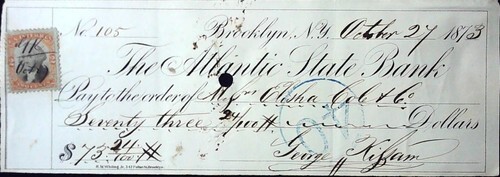 No. 105 Brooklyn, N.Y. October 27 1873
The Atlantic State Bank
Pay to the order of Messrs Elisha Cob & Co
Seventy three 24/100 Dollars
$73 24/100 George Kissam